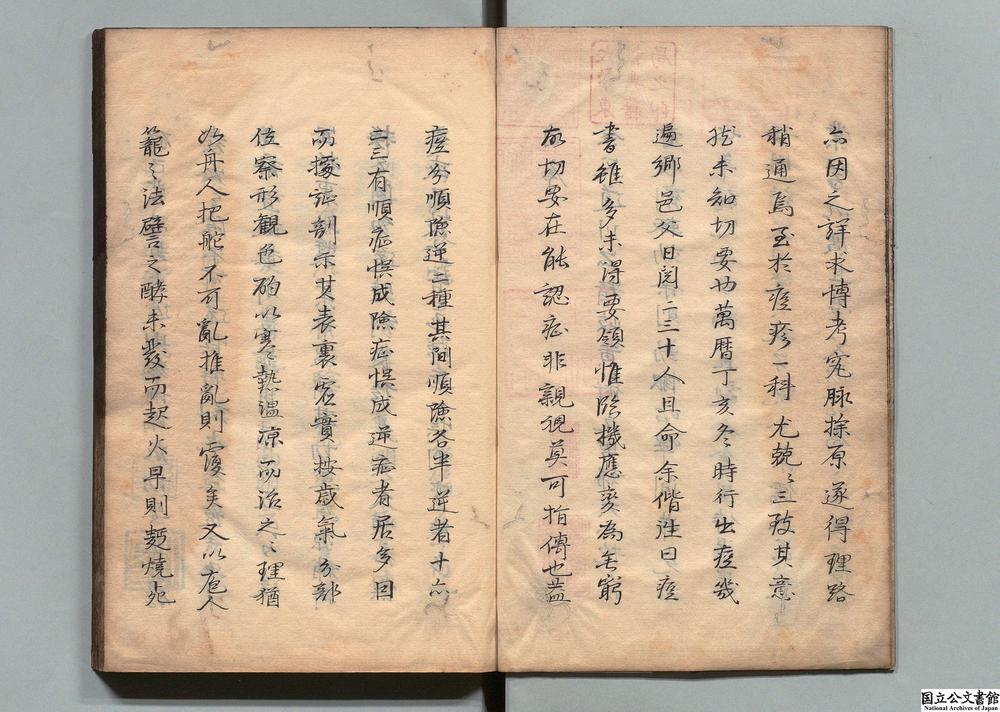 亦因之詳求博考究脉探原遂得理路
稍通焉至於痘疹一科尤兢〻三致其意
猶未知切要也萬曆丁亥冬時行出痘幾
遍鄉邑父日閱二三十人且命余偕往曰痘
書雖多未得要領惟臨機應變為無窮
故切要在能認症非親視莫可指傳也蓋
痘分順險逆三種其間順險各半逆者十亦
二三有順症悞成險症悞成逆症者居多因
而據証剖示其表裏虛實按歲氣分部
位察形觀色酌以寒熱温凉而治之〻理猶
如舟人把舵不可亂推亂則覆矣又以庖人
籠〻法譬之酵未發而起火早則麪燒
国立公文書館
National Archives of Japan